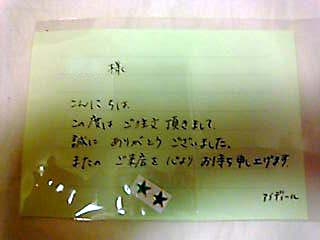 様
こんにちは。
この度は ご注文 頂きまして、
誠に ありがとう ございました。
またの ご来店を 心より お待ち申し上げます。
アンディール